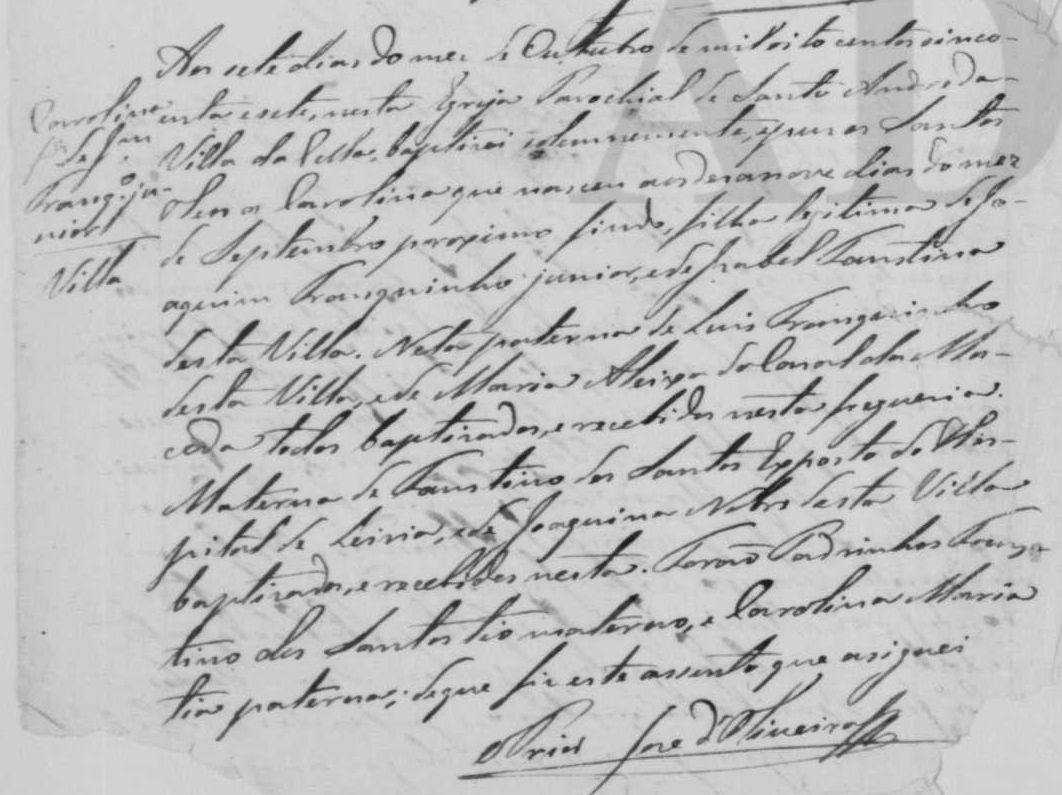 Carolina
fª de Jm
Franqº ju-
nior
Villa
Aos sete dias do mez de Outubro de mil oito centos cinco-
enta e sete, nesta Egreja Parochial de Santo André da
Villa da baptizei solemnemente, e puz os Santos
Oleos a Carolina que nasceu aos desanove dias do mez
de Septembro proximo findo, filha legitima de Jo-
aquim Franquinho junior, e de Isabel Faustina
desta Villa. Neta paterna de Luis Franquinho
desta Villa, e de Maria Aleixa do Casal da Ma-
ceda todos baptizados, e recebidos nesta freguesia.
Materna de Faustino dos Santos Exposto do Hos-
pital de Leiria, e de Joaquina desta Villa
baptizados, e recebidos nesta. Forão Padrinhos Faus-
tino dos Santos tio materno, e Carolina Maria
tia paterna; de que fiz este assento que asignei
O Prior Jose d'Oliveira